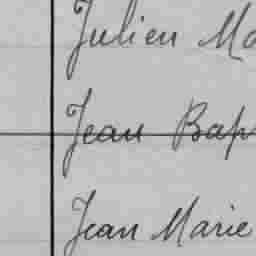 Julien Ma
Jean Bap
Jean Marie